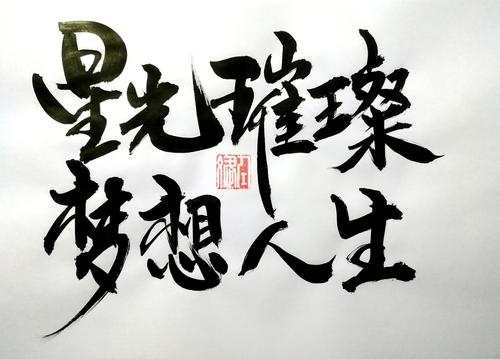 星光璀璨
梦想人生